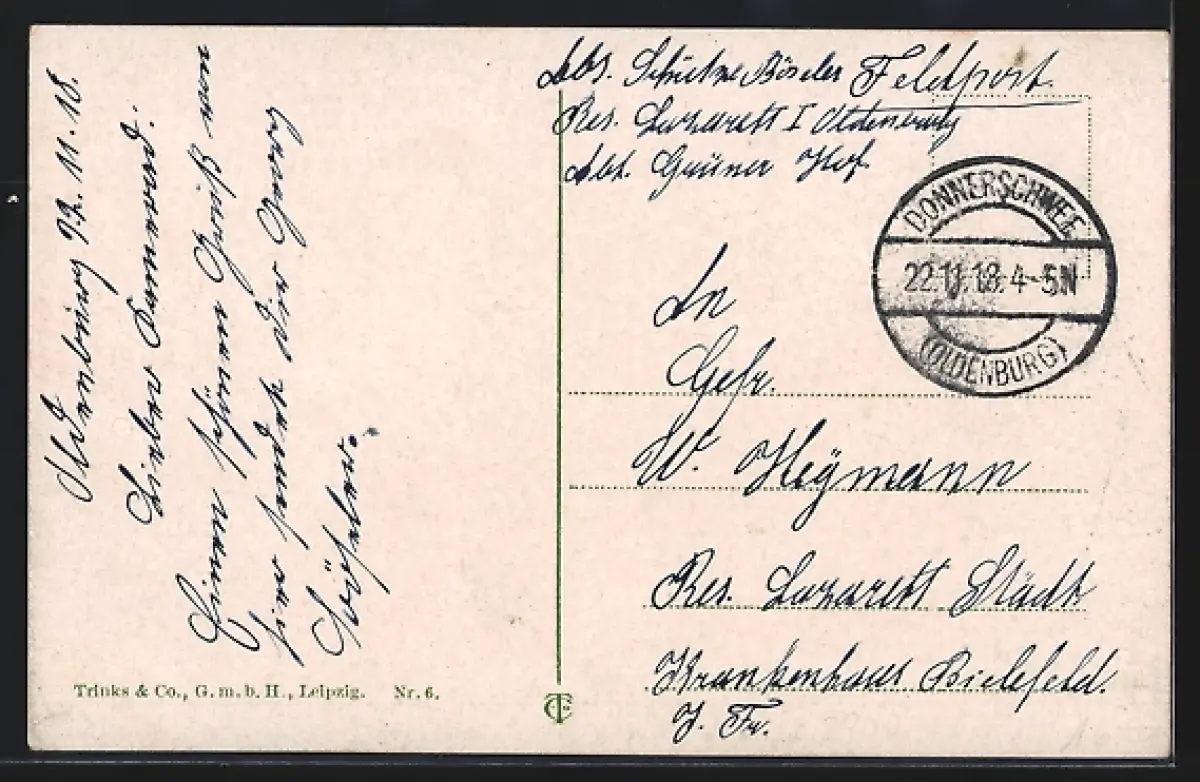 Oldenburg 22.11.18.
Lieber Kamerad.
Einen schönen Gruß von
hier sendet dir Georg
Böseler.
Trinks & Co., G. m. b. H., Leipzig. Nr. 6.
Abs. Schütze Böseler Feldpost.
Res. Lazarett I Oldenburg
Abt. Grüner Hof.
DONNERSCHWEE
22.11.18. 4-5N
(OLDENBURG)
An
Gefr.
W. Heÿmann
Res. Lazarett Städt.
Krankenhaus Bielefeld.